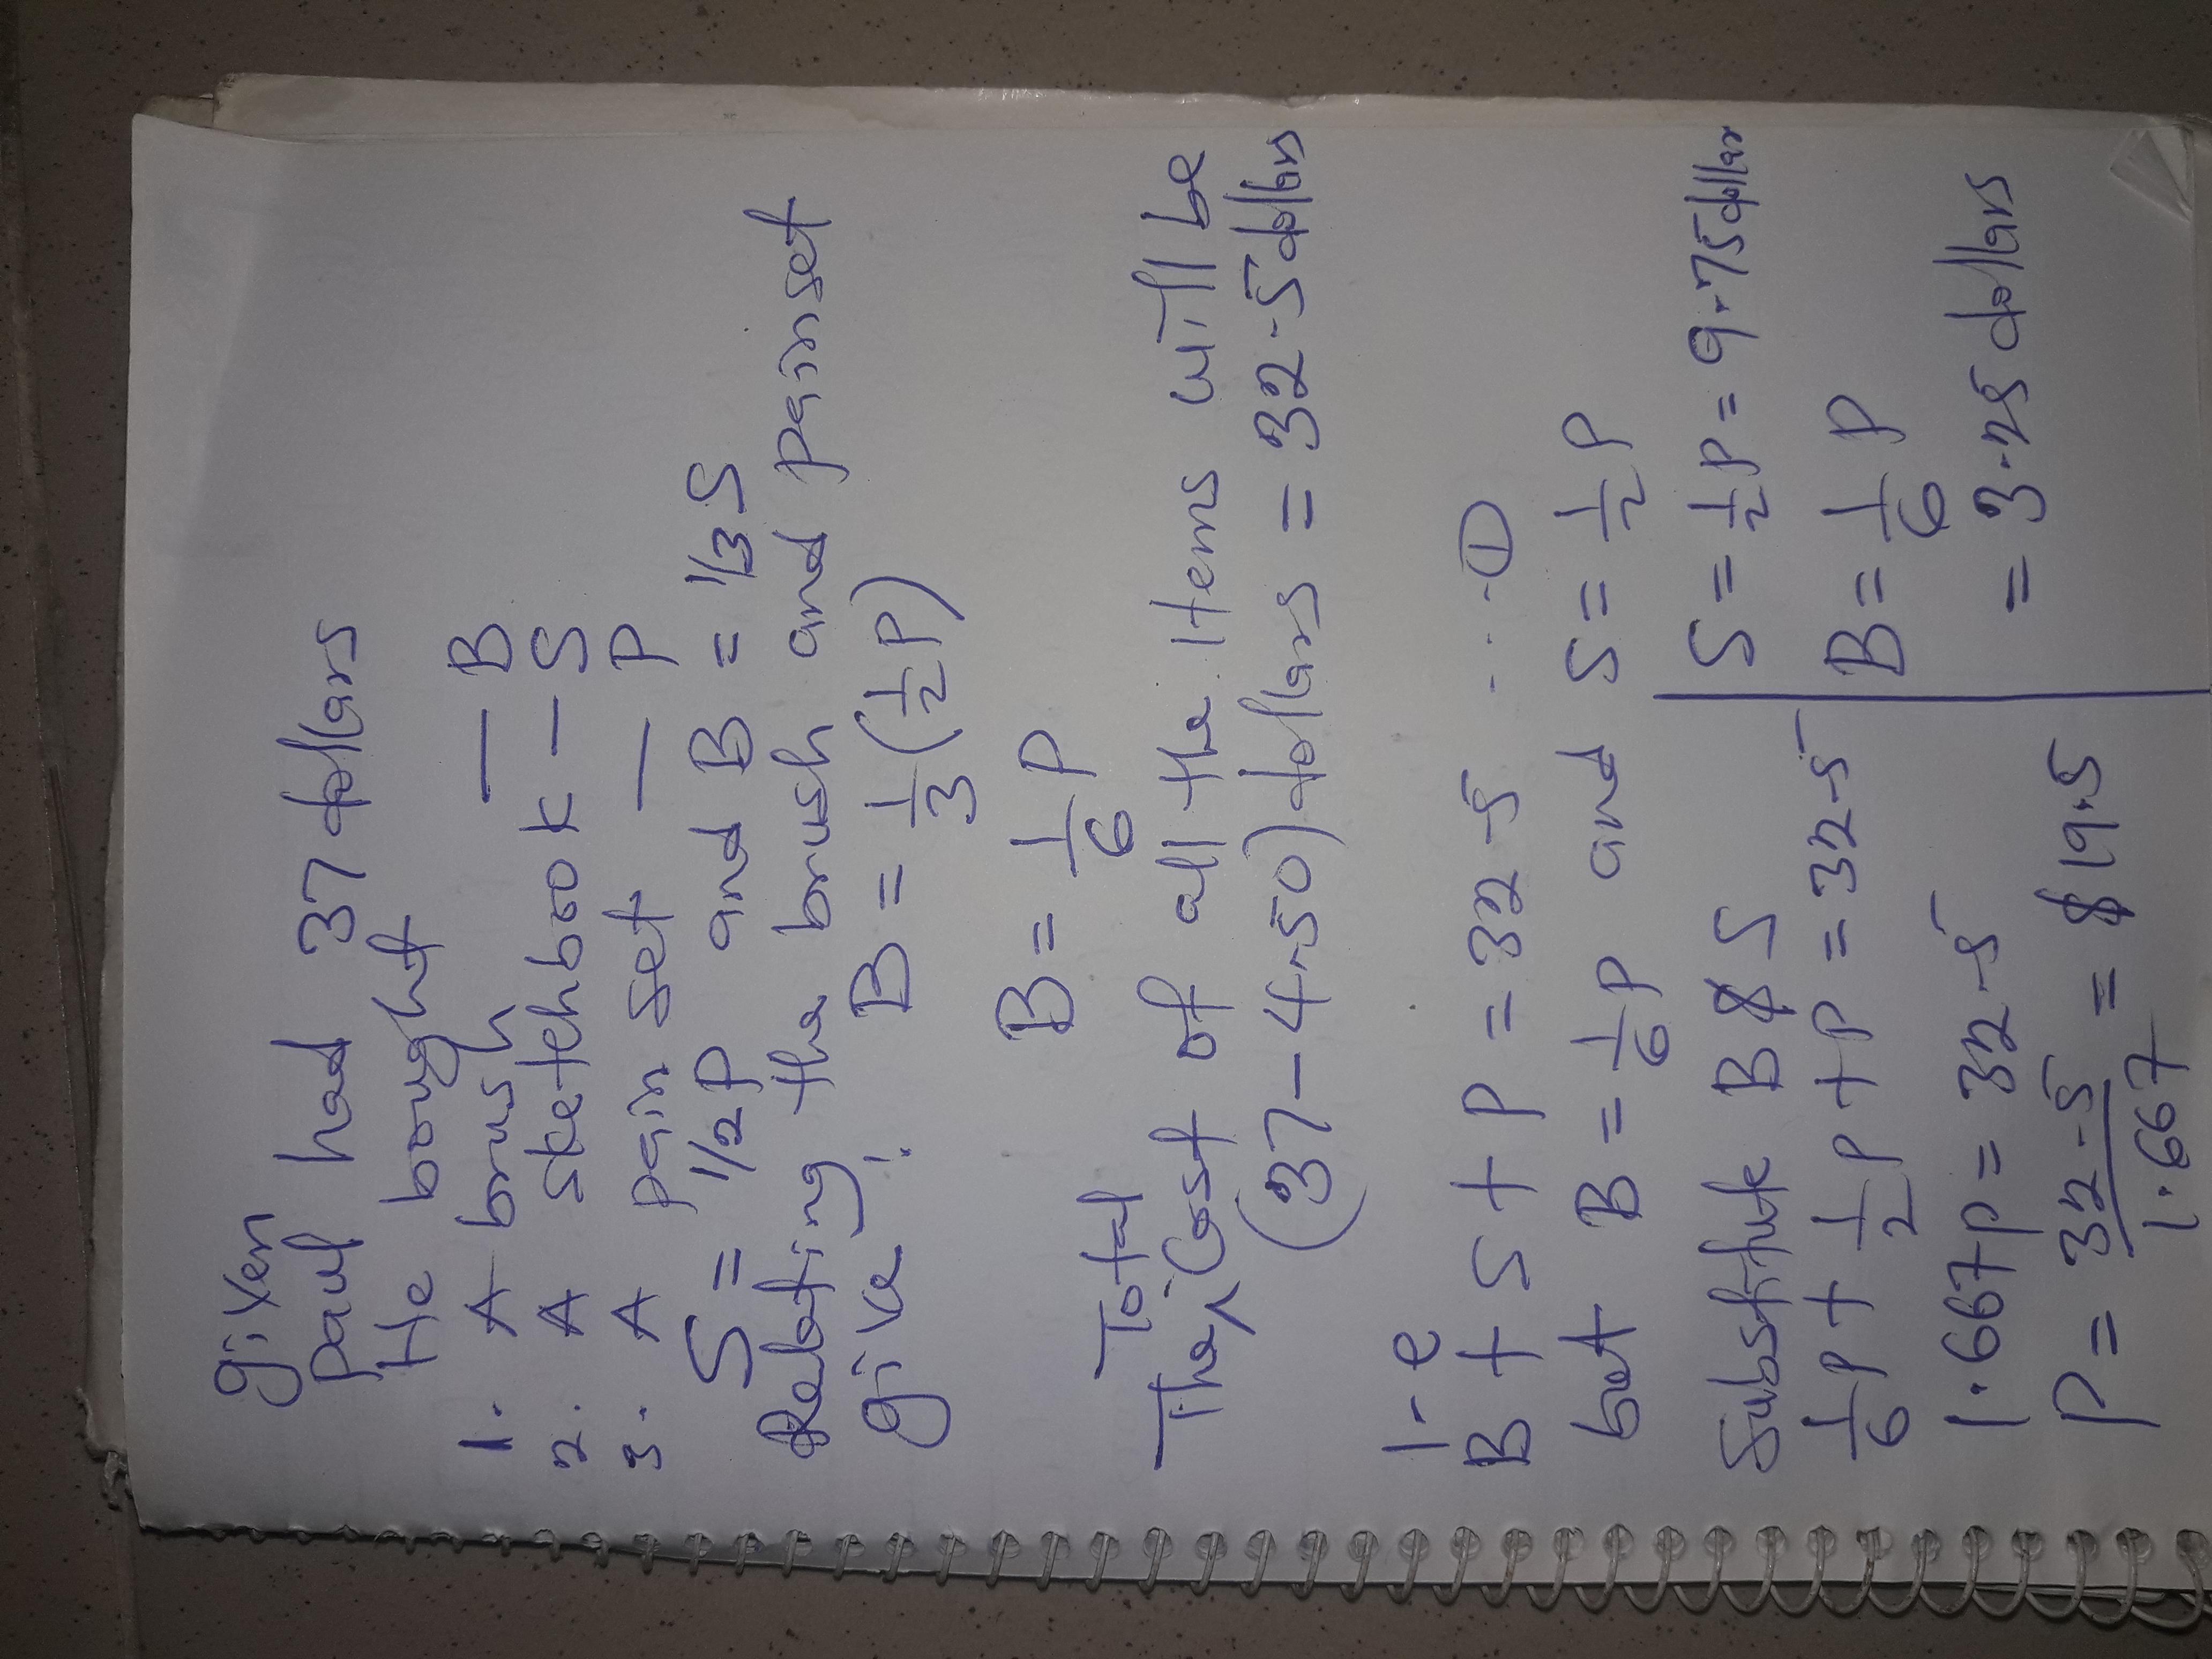 given
paul had 37 dollars
He bought
1. A brush — B
2. A sketchbook — S
3. A pain set — P
S = 1/2P and B = 1/3S
Relating the brush and painset
give: B = 1/3(1/2P)
B = 1/6P
Total
The ^ Cost of all the Items will be
(37-4.50)dollars = 32.5dollars
i.e
B + S + P = 32.5 ....①
but B = 1/6P and S = 1/2P
Substitute B & S
1/6P + 1/2P + P = 32.5
1.667P = 32.5
P = 32.5/1.667 = $19.5
S = 1/2P = 9.75dollar
B = 1/6P
= 3.25 dollars